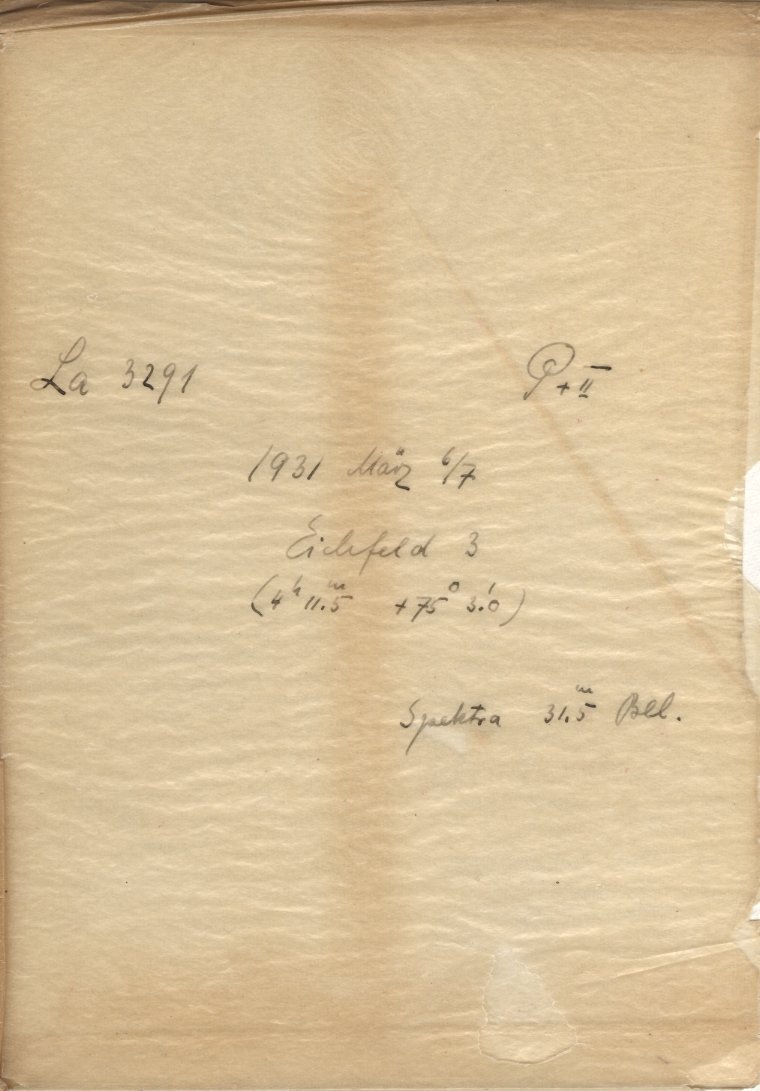 La 3291 P + II
1931 März 6/7
Eichfeld 3
(4ʰ 11.ᵐ5 +75° 3.'0)
Spektra 31.ᵐ5 Bel.